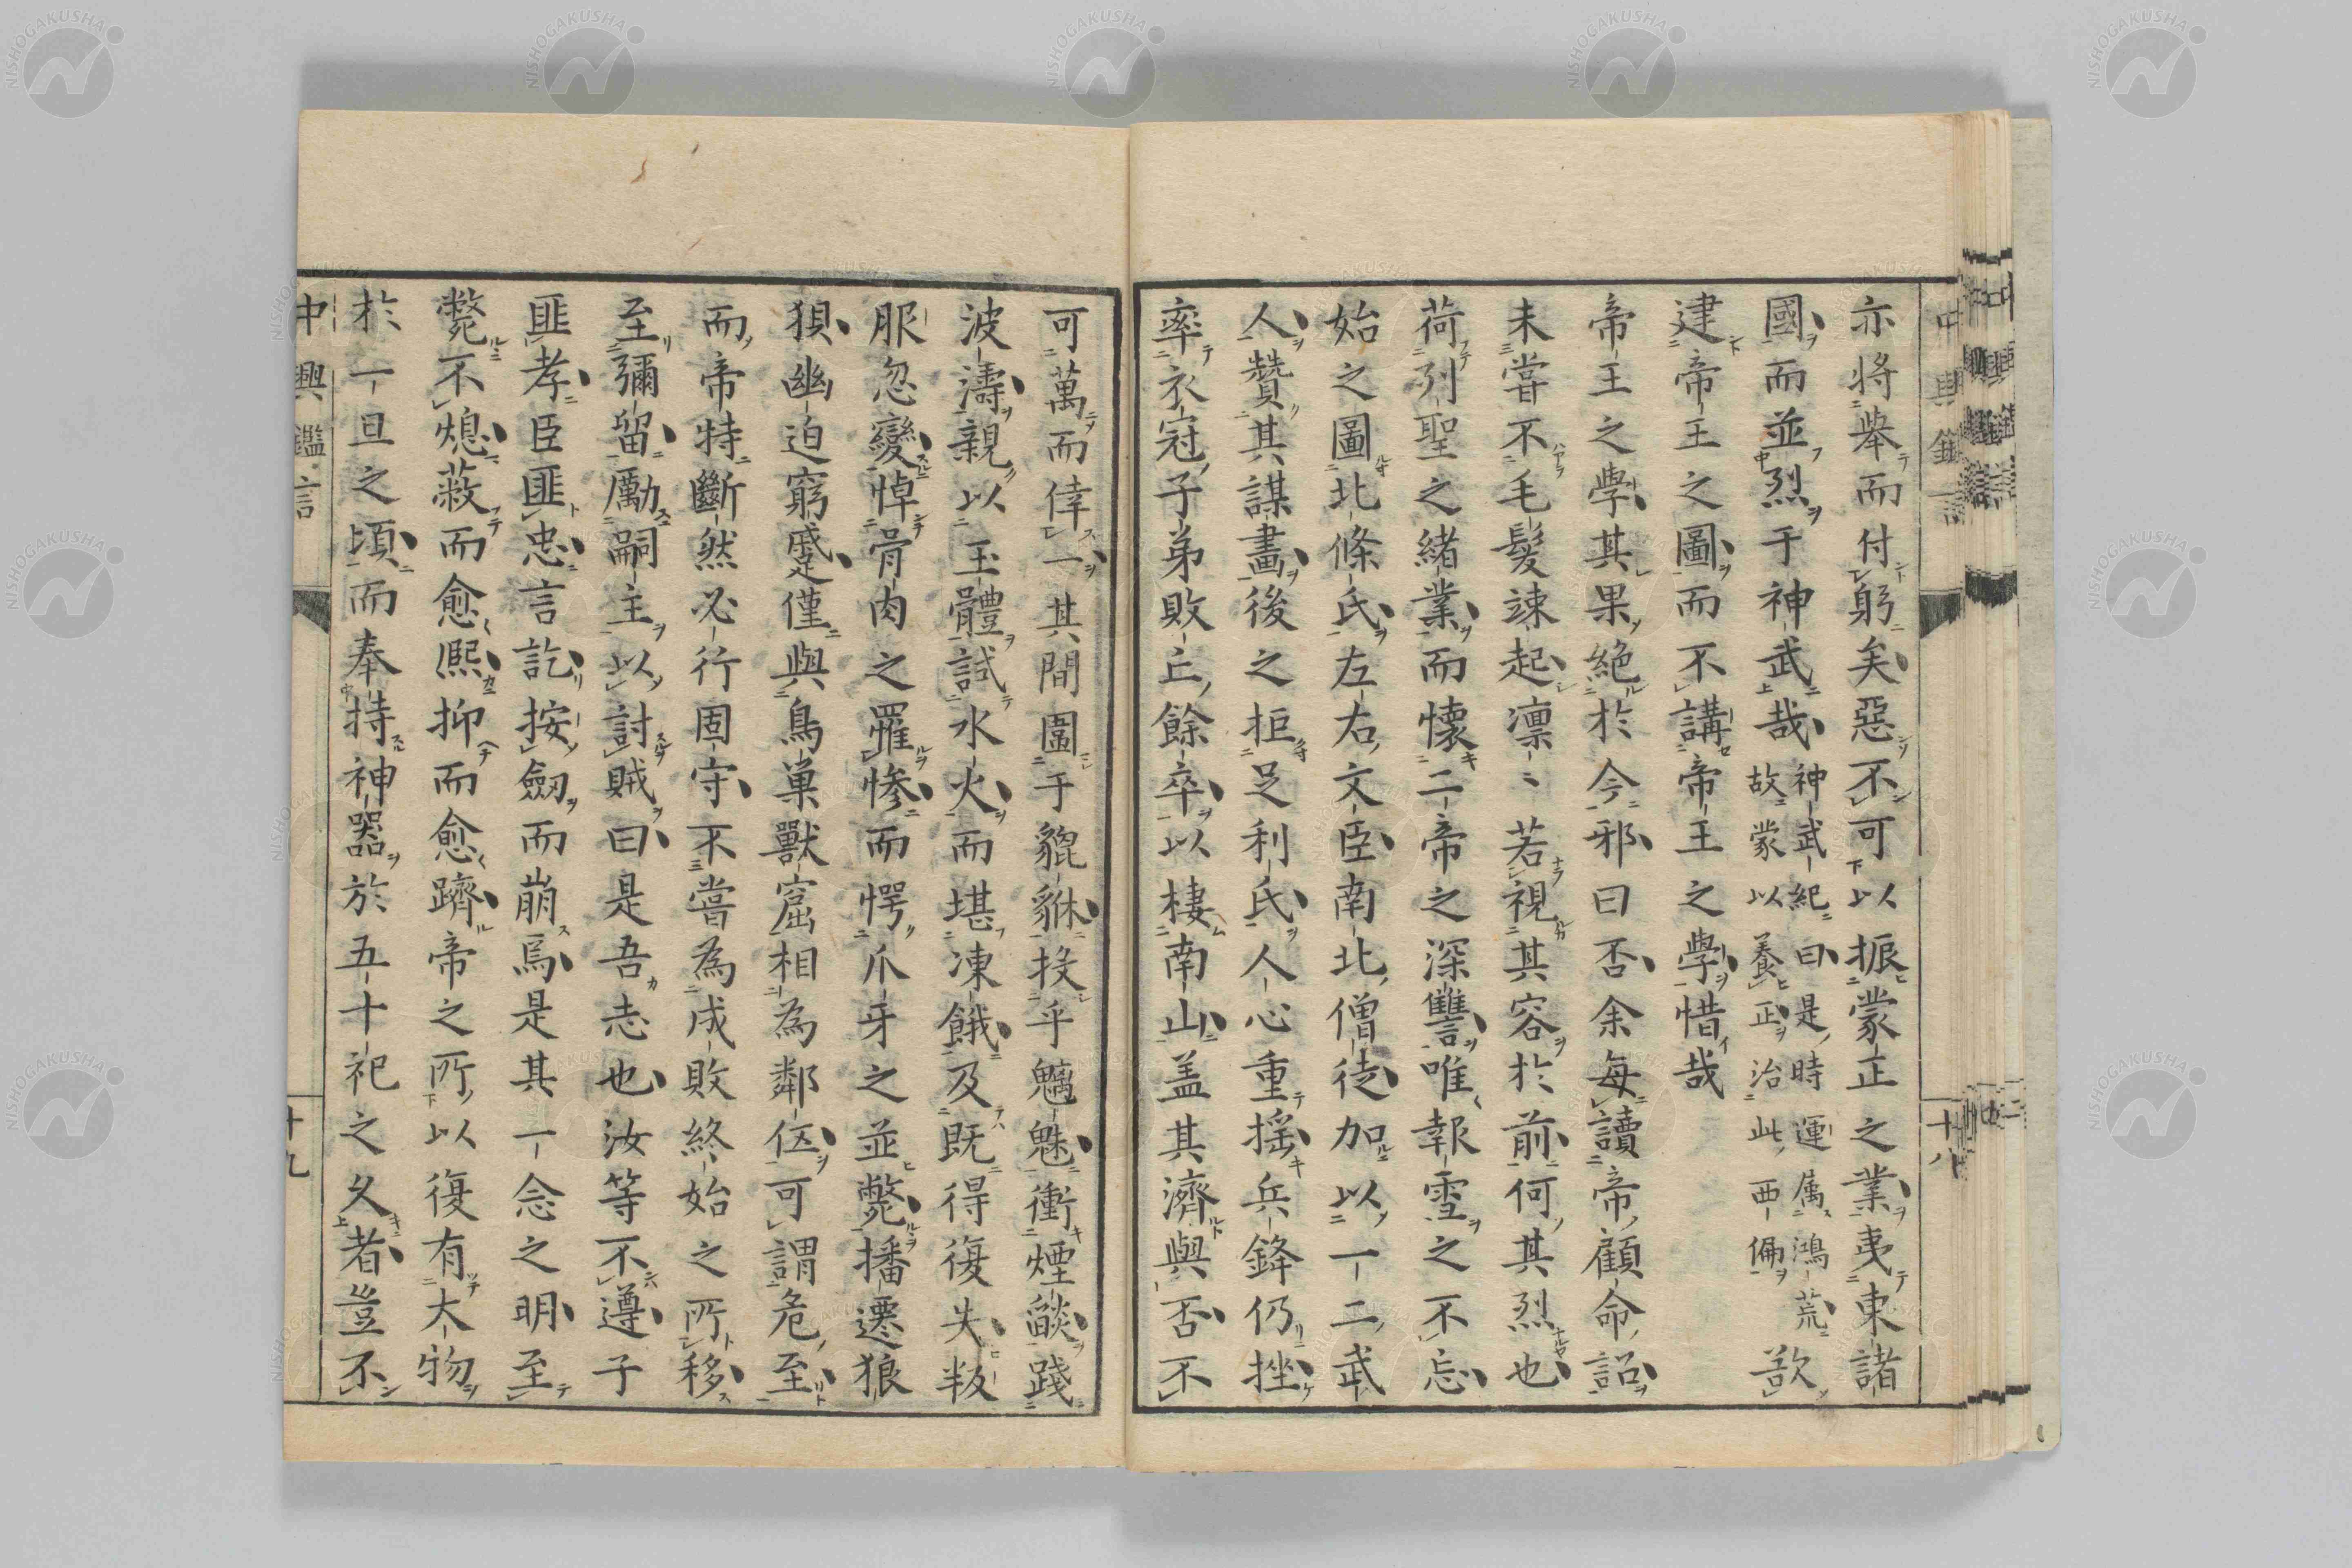 亦將舉而付躬矣惡不可以振蒙正之業夷東諸
國而並烈于神武哉神武紀曰是時運属鴻荒
故蒙以養正治此西偏歟
建帝王之圖而不講帝王之學惜哉
帝王之學其果絕於今邪曰否余每讀帝顧命詔
未嘗不毛髮竦起凛〻若視其容於前何其烈也
荷列聖之緒業而懷二帝之深讐唯報雪之不忘
始之圖北條氏左右文臣南北僧徒加以一二武
人贊其謀畫後之拒足利氏人心重搖兵鋒仍挫
率衣冠子弟敗亡餘卒以棲南山盖其濟與否不
可萬而倖一其間圄于貔貅投乎魑魅衝煙燄踐
波濤親以玉體試水火而堪凍餓及既得復失叛
服忽變悼骨肉之罹慘而愕爪牙之並斃播遷狼
狽幽迫窮蹙僅與鳥巢獸窟相為鄰伍可謂危至
而帝特斷然必行固守不嘗為成敗終始之所移
至彌留勵嗣主以討賊曰是吾志也汝等不遵子
匪孝臣匪忠言訖按劔而崩焉是其一念之明至
斃不熄蔽而愈熙抑而愈躋帝之所以復有大物
於一旦之頃而奉持神器於五十祀之久者豈不
中興鑑言
十九
中興鑑言
十八